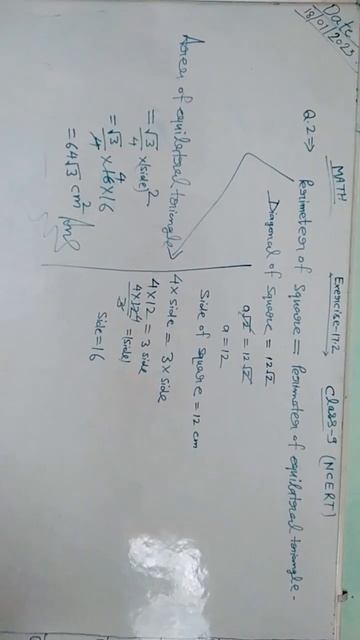 Date
18/01/2023
MATH Exercise-17.2 Class-9 (NCERT)
Q.2⇒ Perimeter of square = Perimeter of equilateral triangle-
Diagonal of square = 12√2
a√2 = 12√2
a = 12
Side of square = 12 cm
4×side = 3×side
4×12 = 3 side
4×12 4 / 3 = (side)
side = 16
Area of equilateral triangle
= √3/4 ×(side)²
= √3/4 × 16 4 × 16
= 64√3 cm² Ans